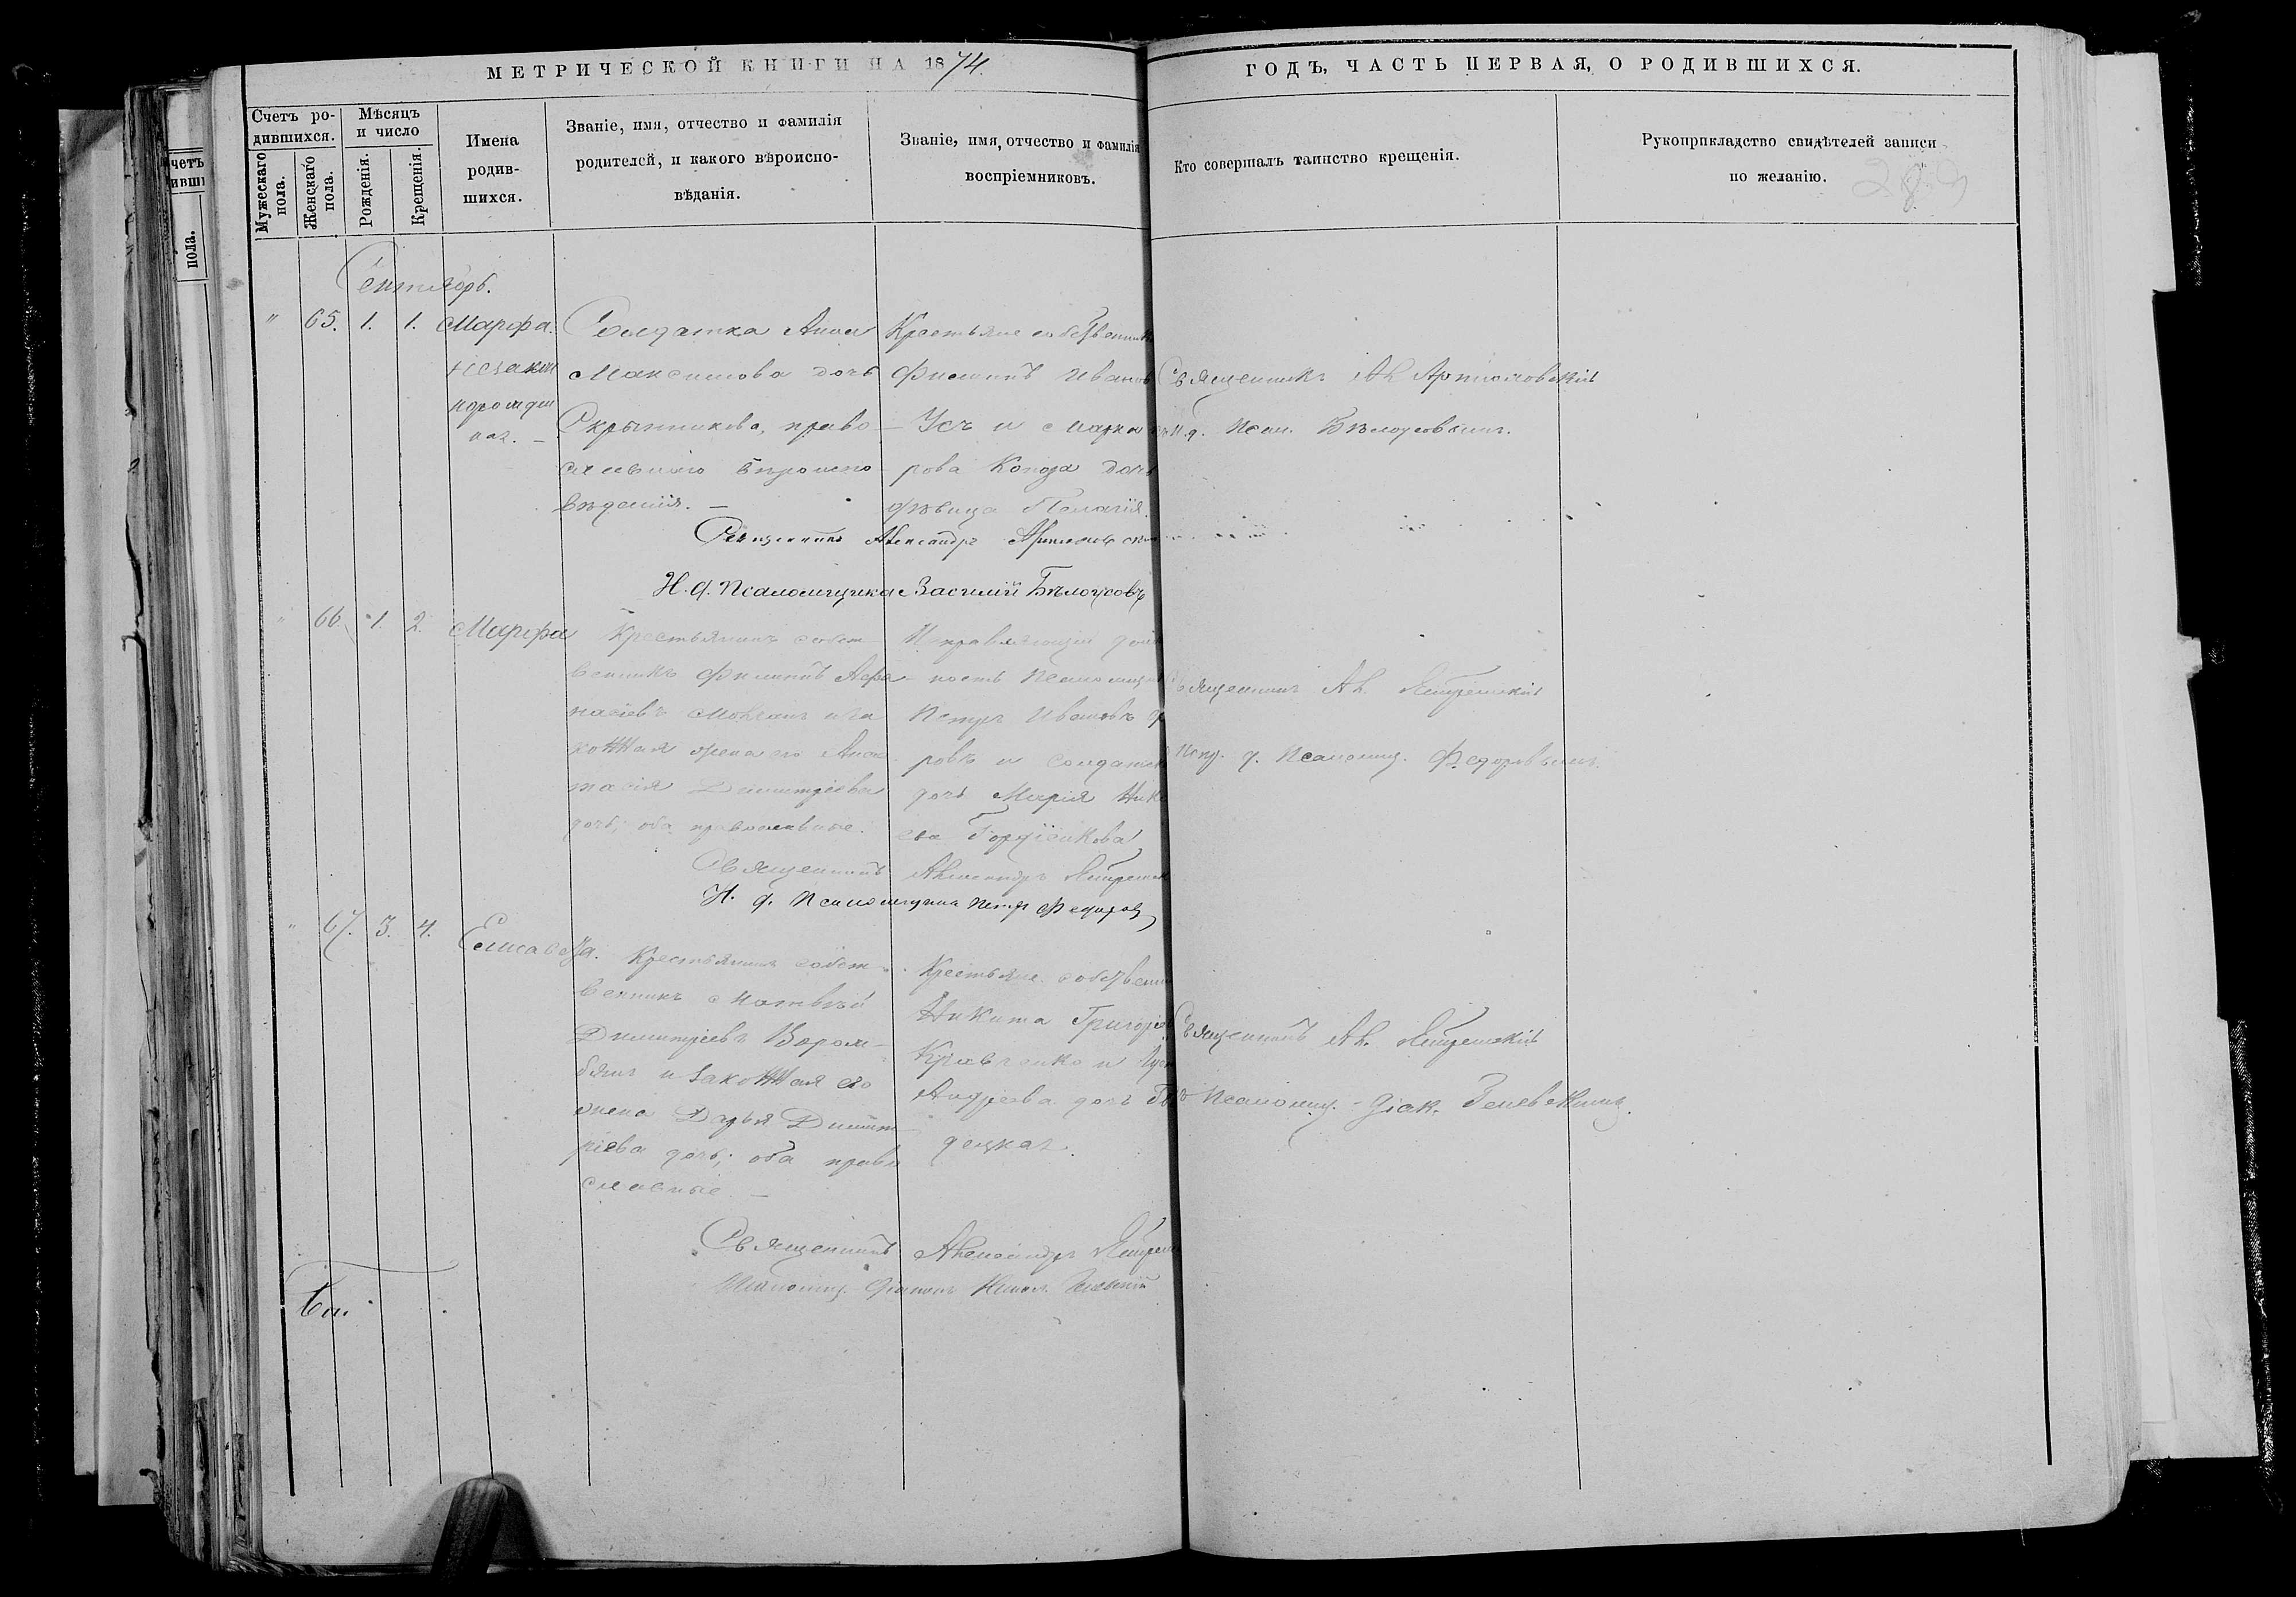 МЕТРИЧЕСКОЙ КНИГИ НА 1874.
ГОДЪ, ЧАСТЬ ПЕРВАЯ, О РОДИВШИХСЯ.
Счетъ ро-
дившихся.
Мужескаго
пола.
Женскаго
пола.
Мѣсяцъ
и число
Рожденія.
Крещенія.
Имена
родив-
шихся.
Званіе, имя, отчество и фамилія
родителей, и какого вѣроиспо-
вѣданія.
Званіе, имя, отчество и фамилія
воспріемниковъ.
Кто совершалъ таинство крещенія.
Рукоприкладство свидѣтелей записи
по желанію.
четъ
пола.
Сентябрь.
" 65. 1. 1. Марфа.
незакон
норожден
ная. –
Солдатка Анна
Максимова дочь
Скрынникова, право
славнаго вѣроиспо
вѣданія. –
Крестьяне собственник
Филиппъ Иванов
Усъ и Марка
рова Коноза дочь
дѣвица Пелагія.
Священникъ Ал Артюховскій
И. д. Псал. Бѣлоусовымъ.
Священникъ Александръ
И. д. Псаломщика Василій Бѣлоусовъ
" 66. 1. 2. Марфа
Крестьянинъ собст
венникъ Филиппъ Афа
насіевъ и за
конная жена его Анас
тасія Димитріева
дочь; оба православные.
Исправляющій долж
ность Псаломщик
Петръ Ивановъ
ровъ и солдатск
дочь Марія Ник
ева Гордіенкова
Священникъ Ал.
Испр. д. Псаломщ. Федоровымъ.
Священникъ Александръ
И. д. Псаломщика Петръ Федоровъ
" 67. 3. 4. Елисавета.
Крестьянинъ собст
венникъ Матвѣй
Димитріевъ Ворож
бянъ и законная его
жена Дарья Димит
ріева дочь; оба право
славные –
Крестьяне собствен
Никита Григоріев
Кравченко и
Андреева дочь
децкая.
Священникъ Ал.
Псаломщ. – діак.
Священникъ Александръ
Псаломщ. Діаконъ